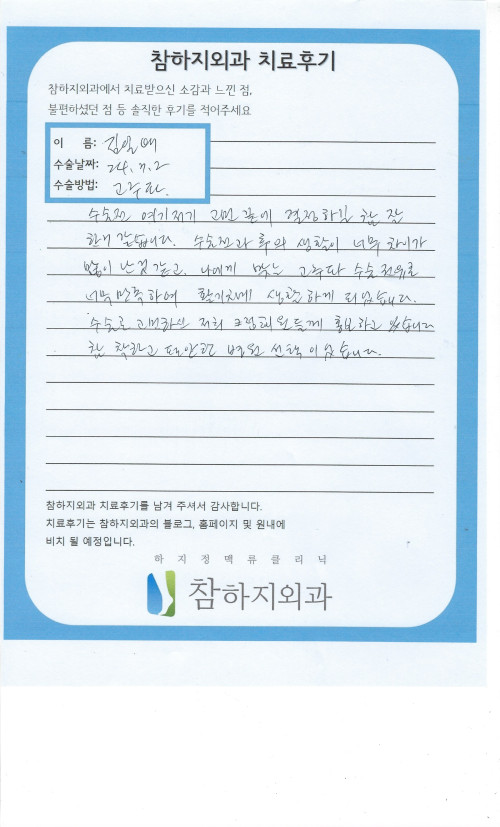 참하지외과 치료후기
참하지외과에서 치료받으신 소감과 느낀 점,
불편하셨던 점 등 솔직한 후기를 적어주세요
이 름: 김일배
수술날짜: 24. 7. 2
수술방법: 고주파.
수술전 여기저기 고민 끝에 결정하길 참 잘
한거 같습니다. 수술전과 후의 생활이 너무 차이가
많이 난것 같고, 나에게 맞는 고주파 수술 치료로
너무 만족하여 활기차게 생활하게 되었습니다.
수술로 고민하신 저희 회원들께 홍보하고 있습니다
참 착하고 편안한 병원 선택이었습니다.
참하지외과 치료후기를 남겨 주셔서 감사합니다.
치료후기는 참하지외과의 블로그, 홈페이지 및 원내에
비치 될 예정입니다.
하지정맥류클리닉
참하지외과